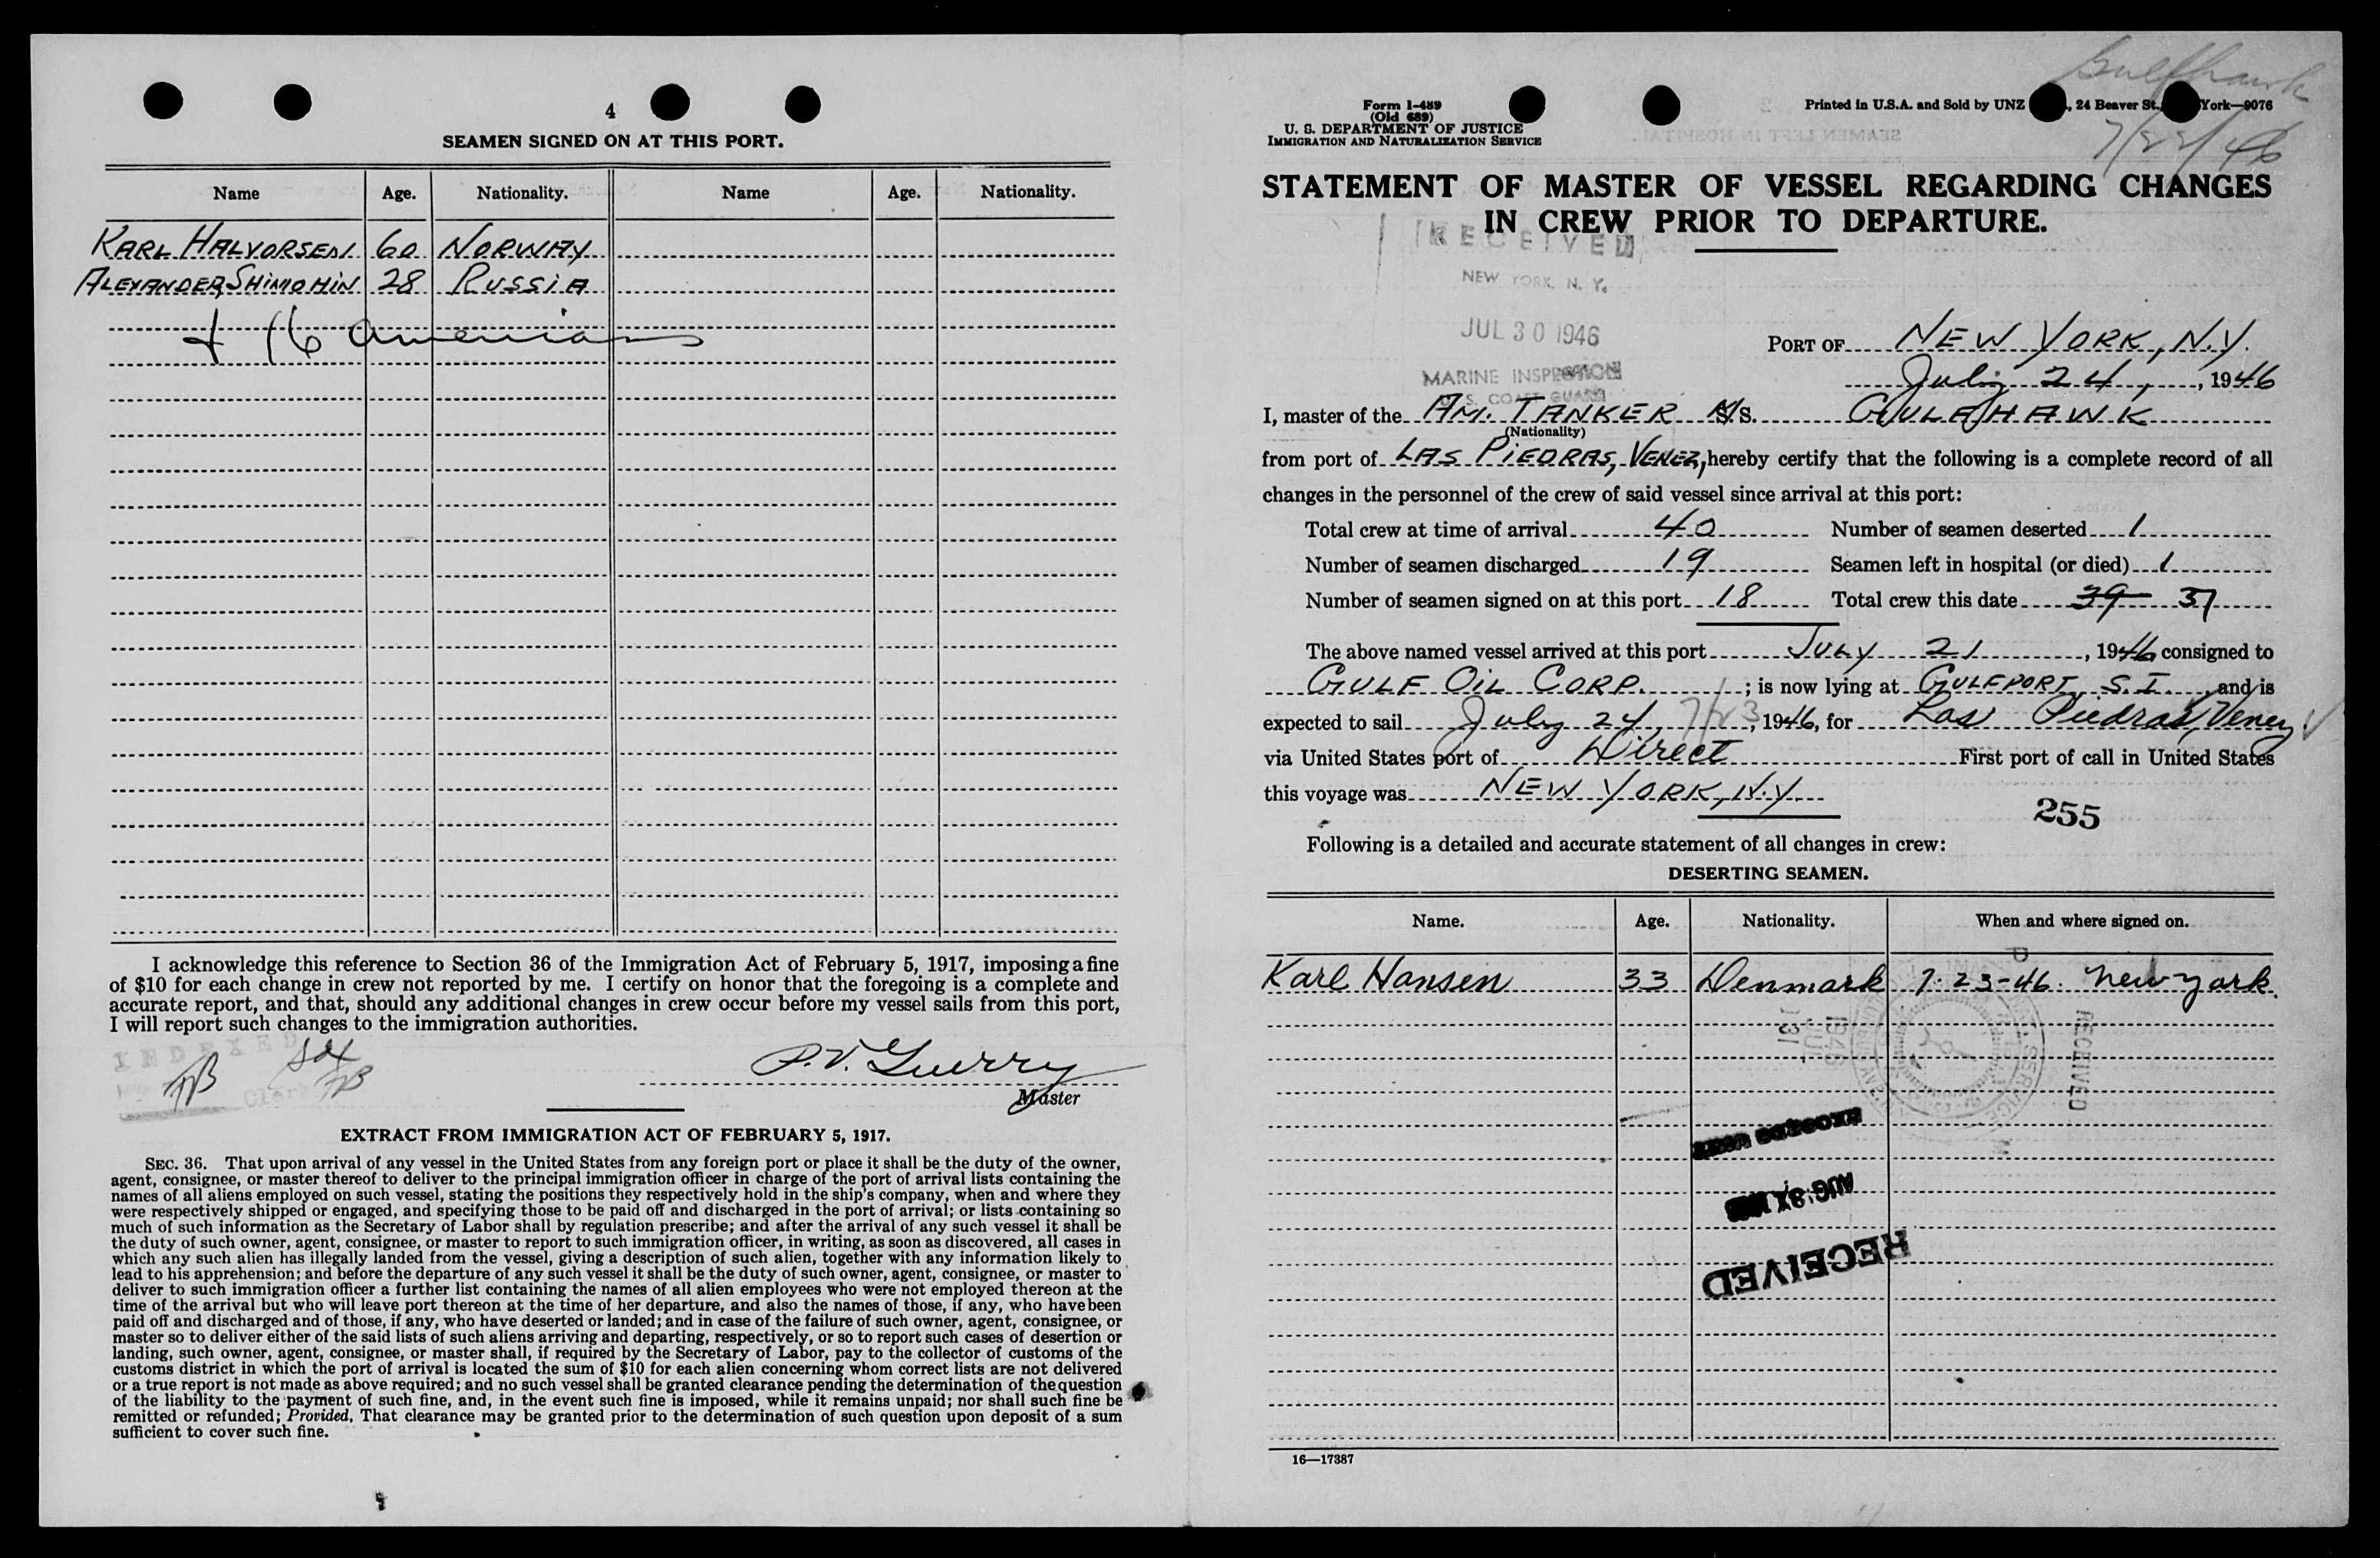 4
SEAMEN SIGNED ON AT THIS PORT.
Name Age. Nationality. Name Age. Nationality.
KARL HALVORSEN 60 NORWAY
ALEXANDER SHIMOHIN 28 RUSSIA
+ 16 Americans
I acknowledge this reference to Section 36 of the Immigration Act of February 5, 1917, imposing a fine
of $10 for each change in crew not reported by me. I certify on honor that the foregoing is a complete and
accurate report, and that, should any additional changes in crew occur before my vessel sails from this port,
I will report such changes to the immigration authorities.
INDEXED
P.V. Guerry
Master
EXTRACT FROM IMMIGRATION ACT OF FEBRUARY 5, 1917.
SEC. 36. That upon arrival of any vessel in the United States from any foreign port or place it shall be the duty of the owner,
agent, consignee, or master thereof to deliver to the principal immigration officer in charge of the port of arrival lists containing the
names of all aliens employed on such vessel, stating the positions they respectively hold in the ship's company, when and where they
were respectively shipped or engaged, and specifying those to be paid off and discharged in the port of arrival; or lists containing so
much of such information as the Secretary of Labor shall by regulation prescribe; and after the arrival of any such vessel it shall be
the duty of such owner, agent, consignee, or master to report to such immigration officer, in writing, as soon as discovered, all cases in
which any such alien has illegally landed from the vessel, giving a description of such alien, together with any information likely to
lead to his apprehension; and before the departure of any such vessel it shall be the duty of such owner, agent, consignee, or master to
deliver to such immigration officer a further list containing the names of all alien employees who were not employed thereon at the
time of the arrival but who will leave port thereon at the time of her departure, and also the names of those, if any, who have been
paid off and discharged and of those, if any, who have deserted or landed; and in case of the failure of such owner, agent, consignee, or
master so to deliver either of the said lists of such aliens arriving and departing, respectively, or so to report such cases of desertion or
landing, such owner, agent, consignee, or master shall, if required by the Secretary of Labor, pay to the collector of customs of the
customs district in which the port of arrival is located the sum of $10 for each alien concerning whom correct lists are not delivered
or a true report is not made as above required; and no such vessel shall be granted clearance pending the determination of the question
of the liability to the payment of such fine, and, in the event such fine is imposed, while it remains unpaid; nor shall such fine be
remitted or refunded; Provided, That clearance may be granted prior to the determination of such question upon deposit of a sum
sufficient to cover such fine.
Gulfhawk
7/22/46
Form I-489
(Old 689)
U. S. DEPARTMENT OF JUSTICE
IMMIGRATION AND NATURALIZATION SERVICE
Printed in U.S.A. and Sold by UNZ , 24 Beaver St., York—9076
STATEMENT OF MASTER OF VESSEL REGARDING CHANGES
IN CREW PRIOR TO DEPARTURE.
RECEIVED
NEW YORK, N. Y.
JUL 30 1946
MARINE INSPECTION
U. S. COAST GUARD
PORT OF NEW YORK, N.Y.
July 24, , 1946
I, master of the AM. TANKER S. GULFHAWK
(Nationality)
from port of LAS PIEDRAS, VENEZ, hereby certify that the following is a complete record of all
changes in the personnel of the crew of said vessel since arrival at this port:
Total crew at time of arrival 40 Number of seamen deserted 1
Number of seamen discharged 19 Seamen left in hospital (or died) 1
Number of seamen signed on at this port 18 Total crew this date 39 37
The above named vessel arrived at this port JULY 21, 1946 consigned to
GULF OIL CORP. ; is now lying at GULFPORT, S.I. and is
expected to sail July 24 7/23, 1946, for Las Piedras, Venez
via United States port of Direct First port of call in United States
this voyage was NEW YORK, N.Y.
255
Following is a detailed and accurate statement of all changes in crew:
DESERTING SEAMEN.
Name. Age. Nationality. When and where signed on.
Karl Hansen 33 Denmark 7-23-46. New York.
RECEIVED
RECEIVED
16—17387